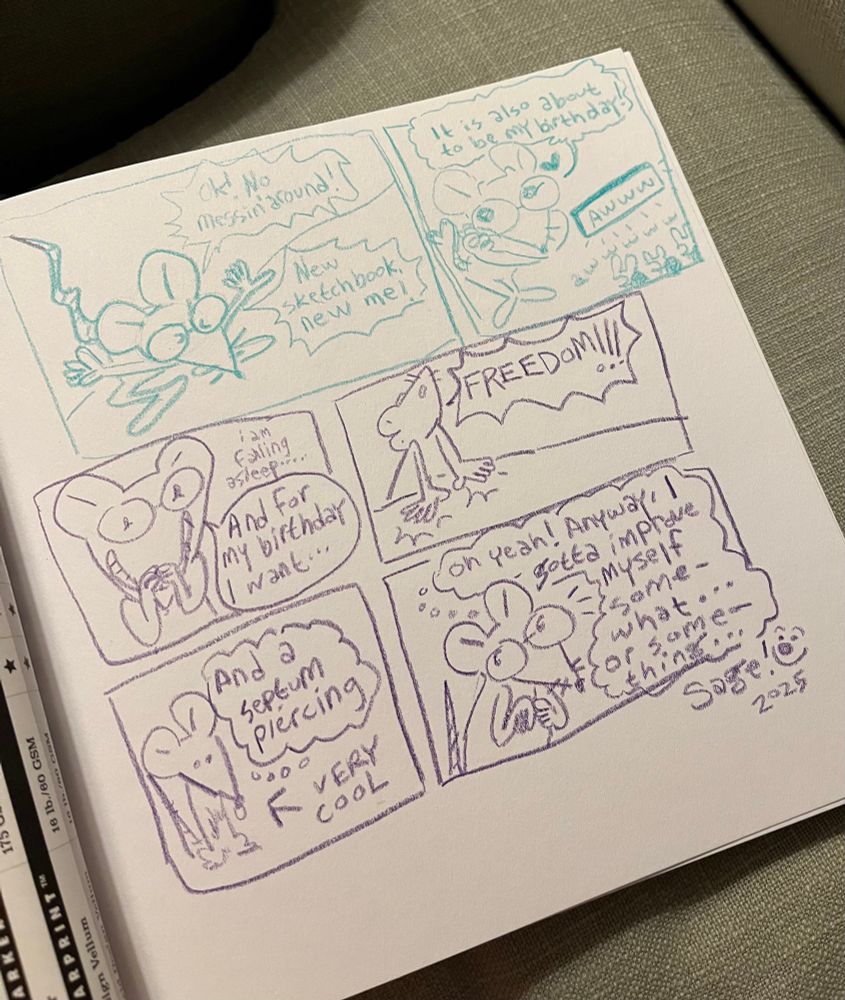 Ok! No
messin' around!
New
sketchbook,
new me!
It is also about
to be my birthday!
AWWW
awwwww
i am
falling
asleep....
And for
my birthday
I want...
FREEDOM!!!
And a
septum
piercing
VERY
COOL
oh yeah! Anyway, I
gotta improve
myself
some-
what...
or some-
thing...
Sage!
2025
16 lb./60 GSM